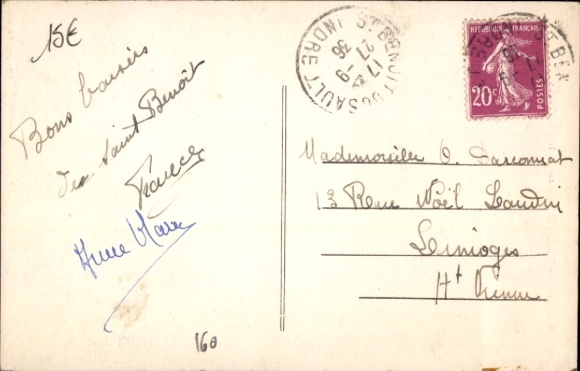 15€
Bons baisers
de Saint Benoît
France
Anne Marie
160
ST BENOIT DU SAULT
INDRE
17 H
21 -9
36
REPUBLIQUE FRANÇAISE
20c
POSTES
Mademoiselle O.
13 Rue Noël
Limoges
Hte Vienne